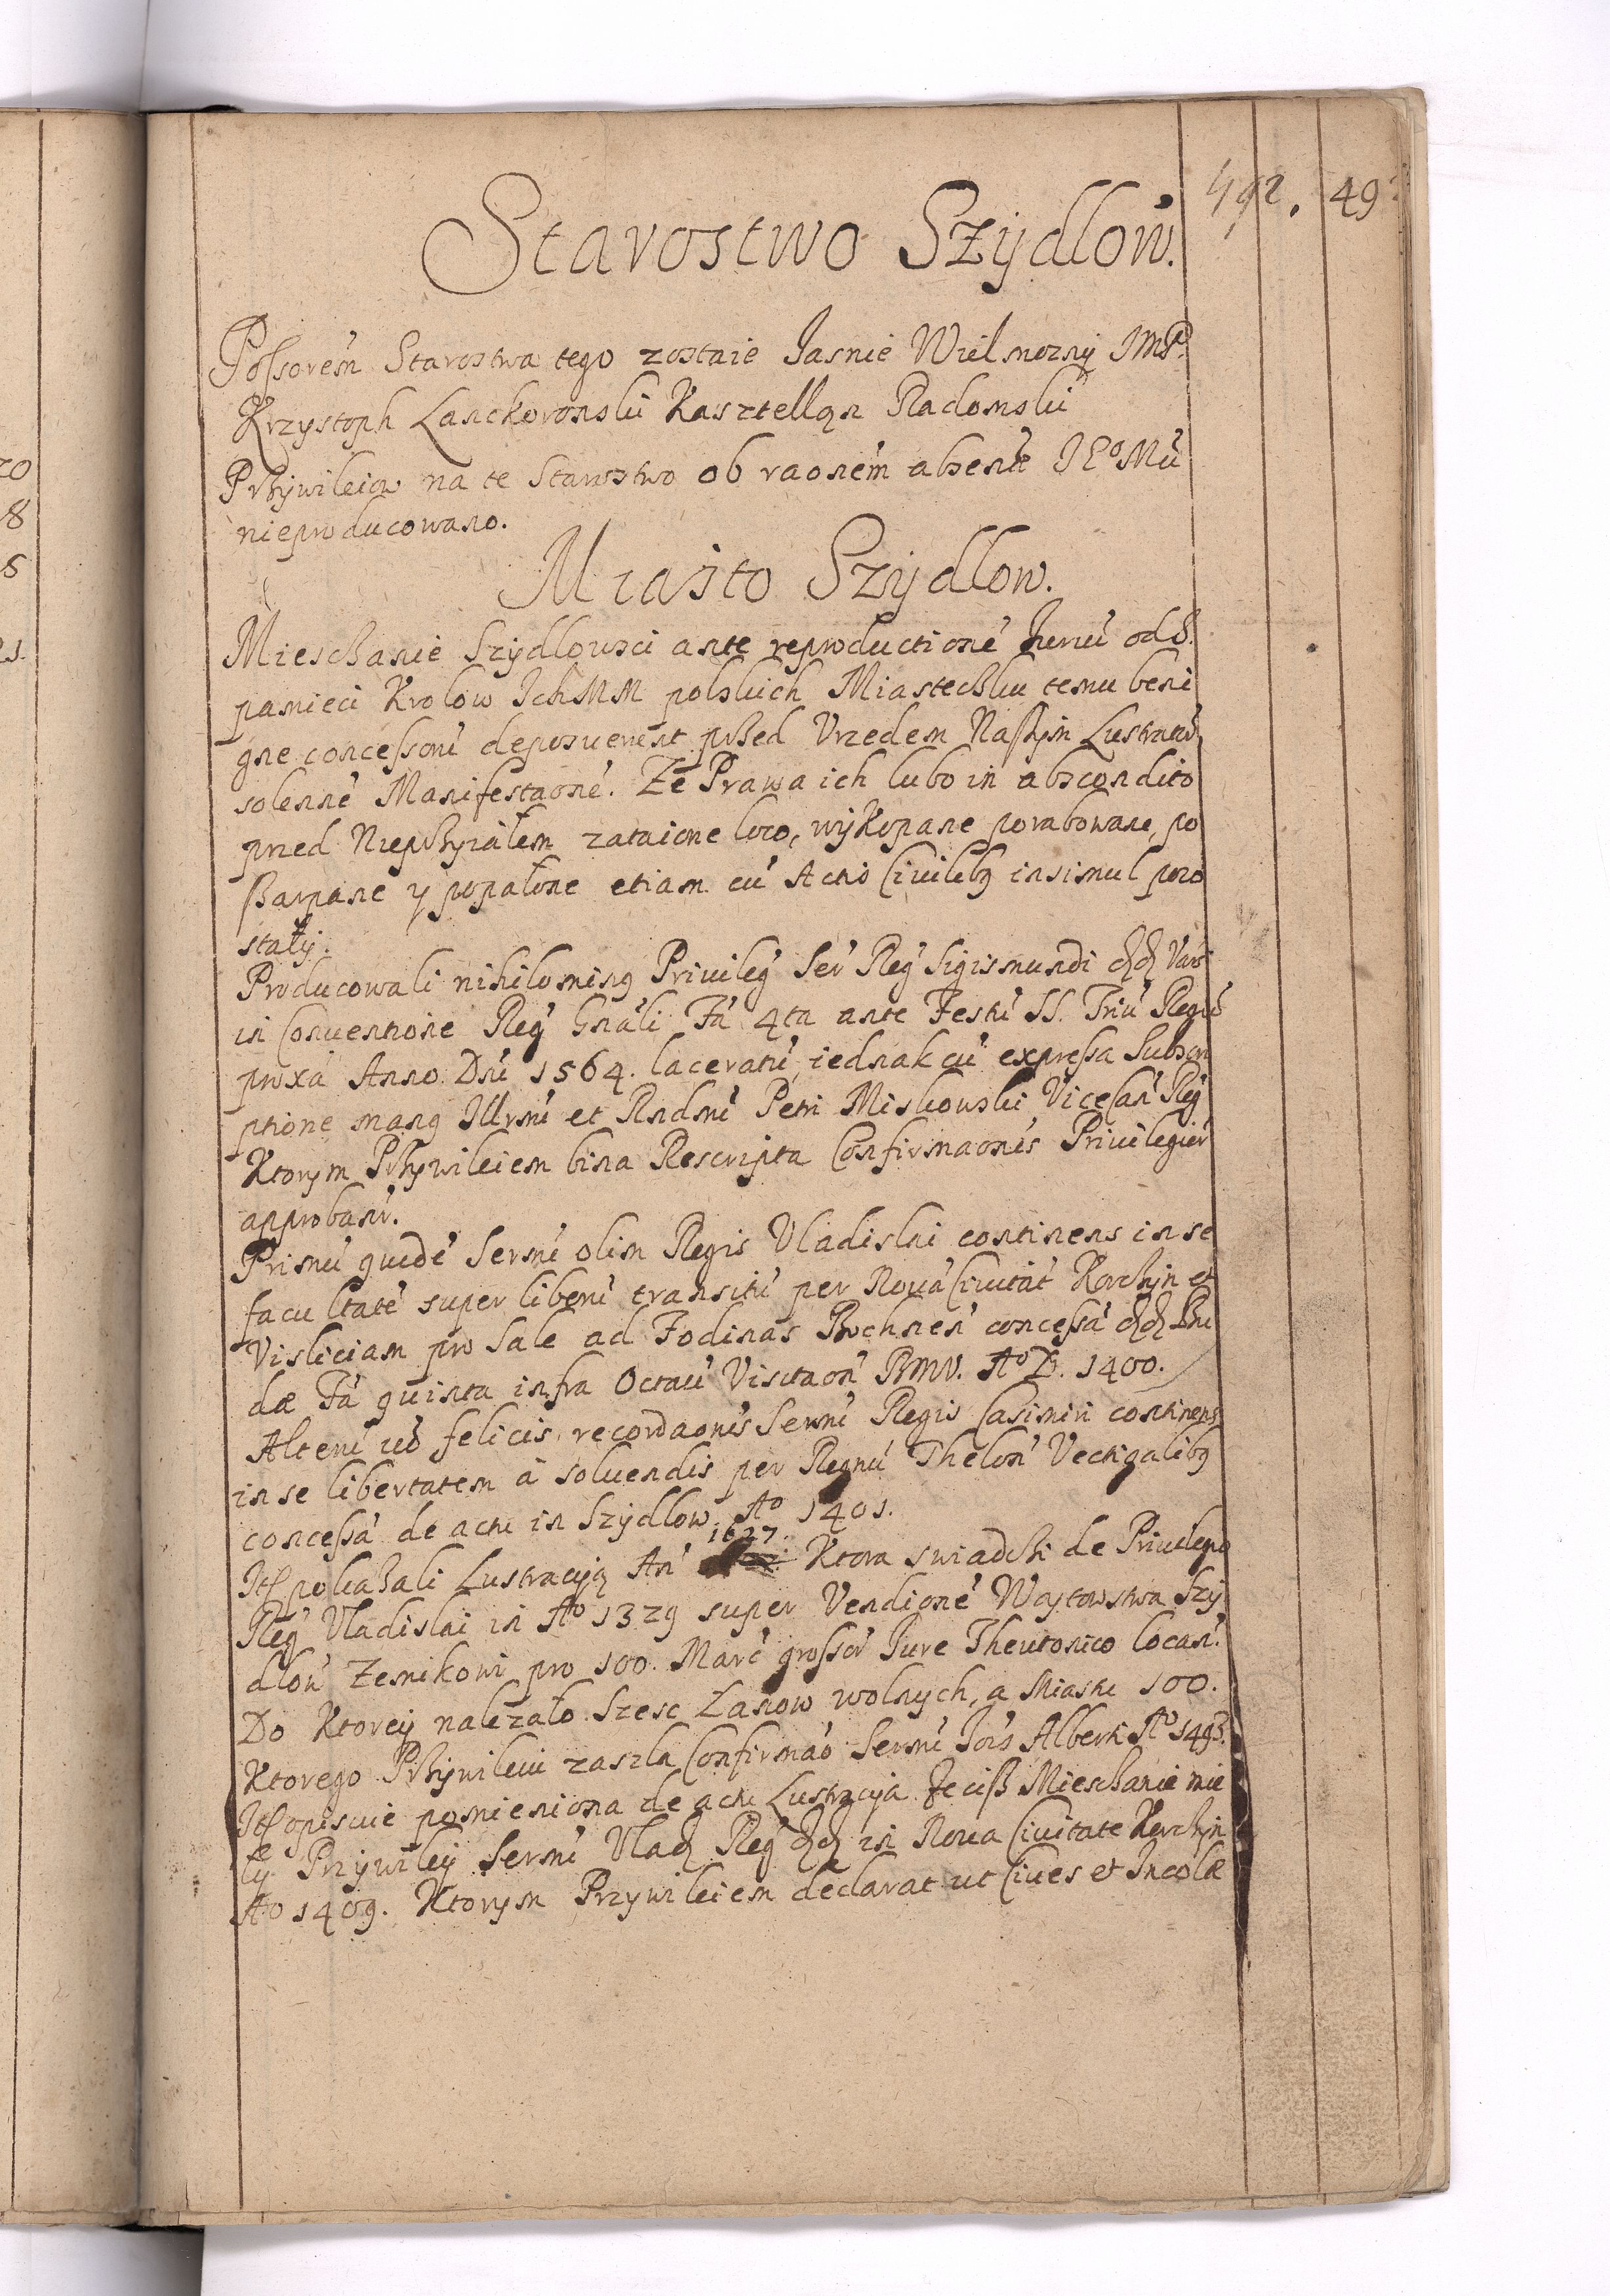 492. 49
Starostwo Szÿdlow.
Possorem Starostwa tego zostaie Jasnie Wielmozny JMP.
Krzystoph Lanckoronski Kasztellan Radomski
Przÿwileiow na te Starostwo ob raonem absentie JEoMci
nieproducowano.
Miasto Szÿdlow.
Mieschanie Szÿdlowsci ante reproductione Juriu od S.
pamieci Krolow JchMM polskich Miasteczku temu beni
gne concessoru deposuerunt przed Vrzedem Naszym Lustrators
solenne Manifestaone. Ze Prawa ich lubo in abscondito
przed Nieprzyiałem zataione loco, wykopane porabowane, po
szarpane y popalone etiam cu Actis Ciuilibg insimul pozo
stały.
Producowali nihiloming Privileg Ser Reg Sigismundi dd Vars
in Conuentione Reg Gnali Fa 4ta ante Festu SS. Triu Regu
proxa Anno Dni 1564. laceratu, iednak cu expressa Subscri
ptione mang Illrmi et Rndmi Petri Miskowski ViceCan Reg
Ktorym Przywileiem bina Rescripta Confirmaonis Privilegior
approbant.
Primu quide Sermi olim Regis Vladislai continens in se
facultate super liberu transitu per Noua Ciuitat Korchyn et
Visliciam pro Sale ad Fodinas Bochnen concessa dd Bu
dæ Fa quinta infra Octau Visitaon BMV. Ao D. 1400.
Alteru uo felicis recordaonis Sermi Regis Casimiri continens
in se libertatem a soluendis per Regnu Thelon Vectigalibg
concessa de actu in Szydlow. Ao 1401.
It pokazali Lustracyą An 1627. Ktora swiadczi de Priuilegio
Reg Vladislai in Ao 1329 super Vendione Woytowstwa Szÿ
dlow Zemikowi pro 100. Marc grossor Jure Theutonico locan.
Do Ktoreÿ nalezało Szesc Łanow wolnych, a Miastu 100.
Ktorego Przÿwileiu zaszla Confirmao Sermi Jois Alberti Ao 1493.
It opisuie pomieniona de actu Lustracyja Je cisz Mieschanie mie
ly Przÿwiley Sermi Vlad Reg dd in Noua Ciuitate Korchyn
Ao 1409. Ktorym Przywileiem declarat ut Ciues et Incolæ